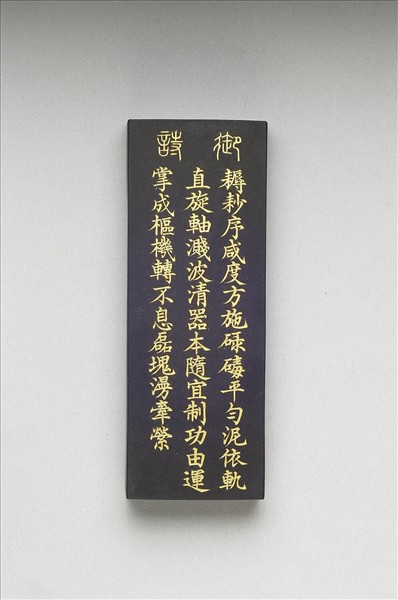 御詩
耨耖序咸度方施碌碡平勻泥依軌
直旋軸濺波清器本隨宜制功由運
掌成樞機轉不息磊塊漫牽縈